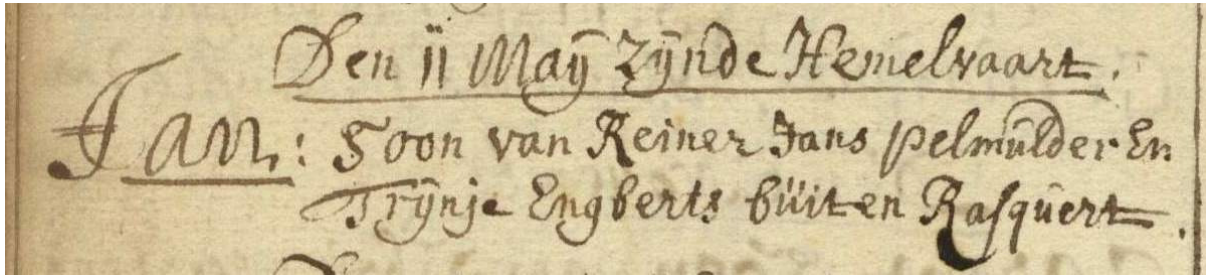 Den 11 Maÿ zÿnde Hemelvaart.
Jan: Soon van Reiner Jans pelmulder En
Trÿnje Engberts buiten Rasquert.